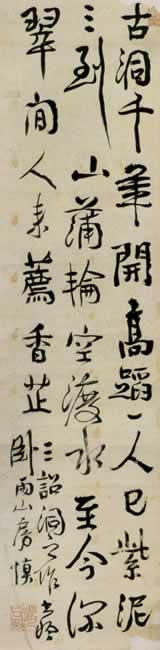 古洞千年開高蹈一人已紫泥
三到山蒲輪空渡水至今深
翠間人來薦香芷
三詔洞
卧雨山房慎